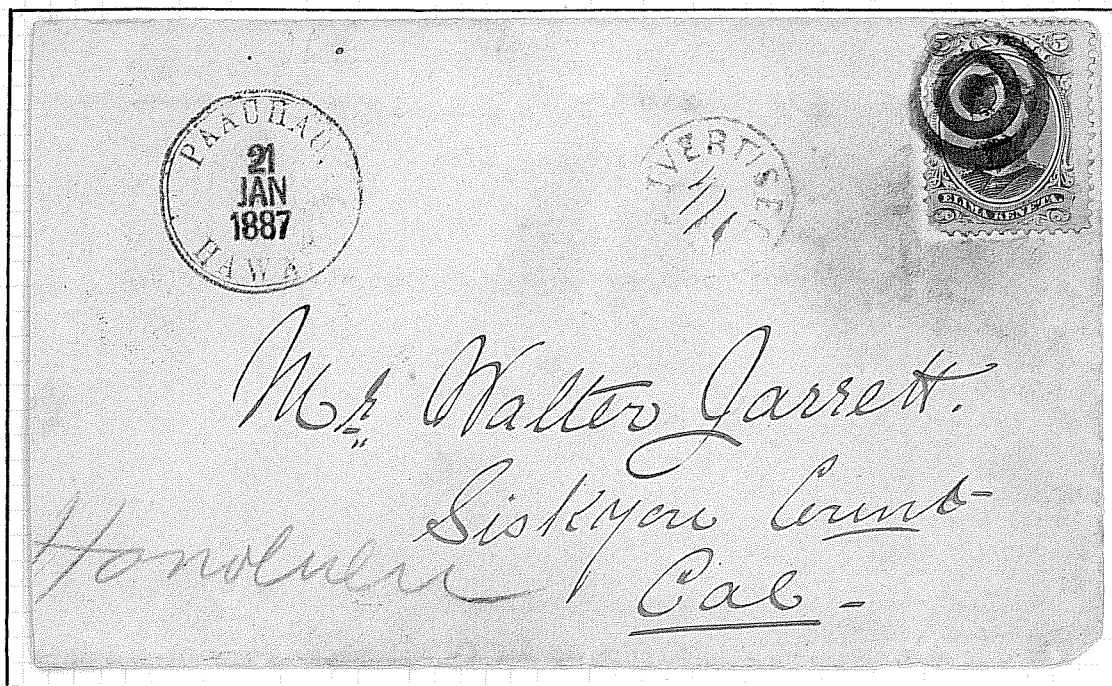 PAAUHAU.
21
JAN
1887
HAWA
DVERTISED
5 5
ELIMA KENETA
Mr Walter Jarrett.
Siskyou Count
Cal -
Honolulu